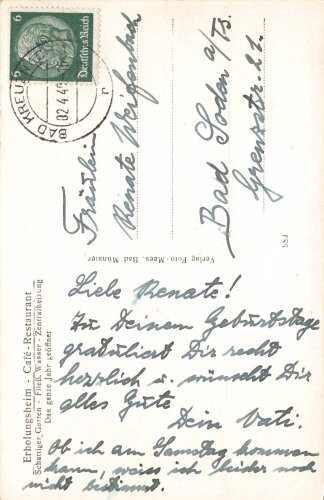 6
Deutsches Reich
BAD KREUZN
02.4.4
Fräulein
Renate Weifenbach
Bad Soden a/Ts.
Grenzstr. 21.
Verlag Foto-Mees, Bad Münster
Erholungsheim - Café - Restaurant
Schattiger Garten - Fließ. Wasser - Zentralheizung
Das ganze Jahr geöffnet
Liebe Renate!
Zu Deinem Geburtstage
gratuliert Dir recht
herzlich u. wünscht Dir
alles Gute
Dein Vati.
Ob ich am Samstag kommen
kann, weiss ich leider noch
nicht bestimmt.